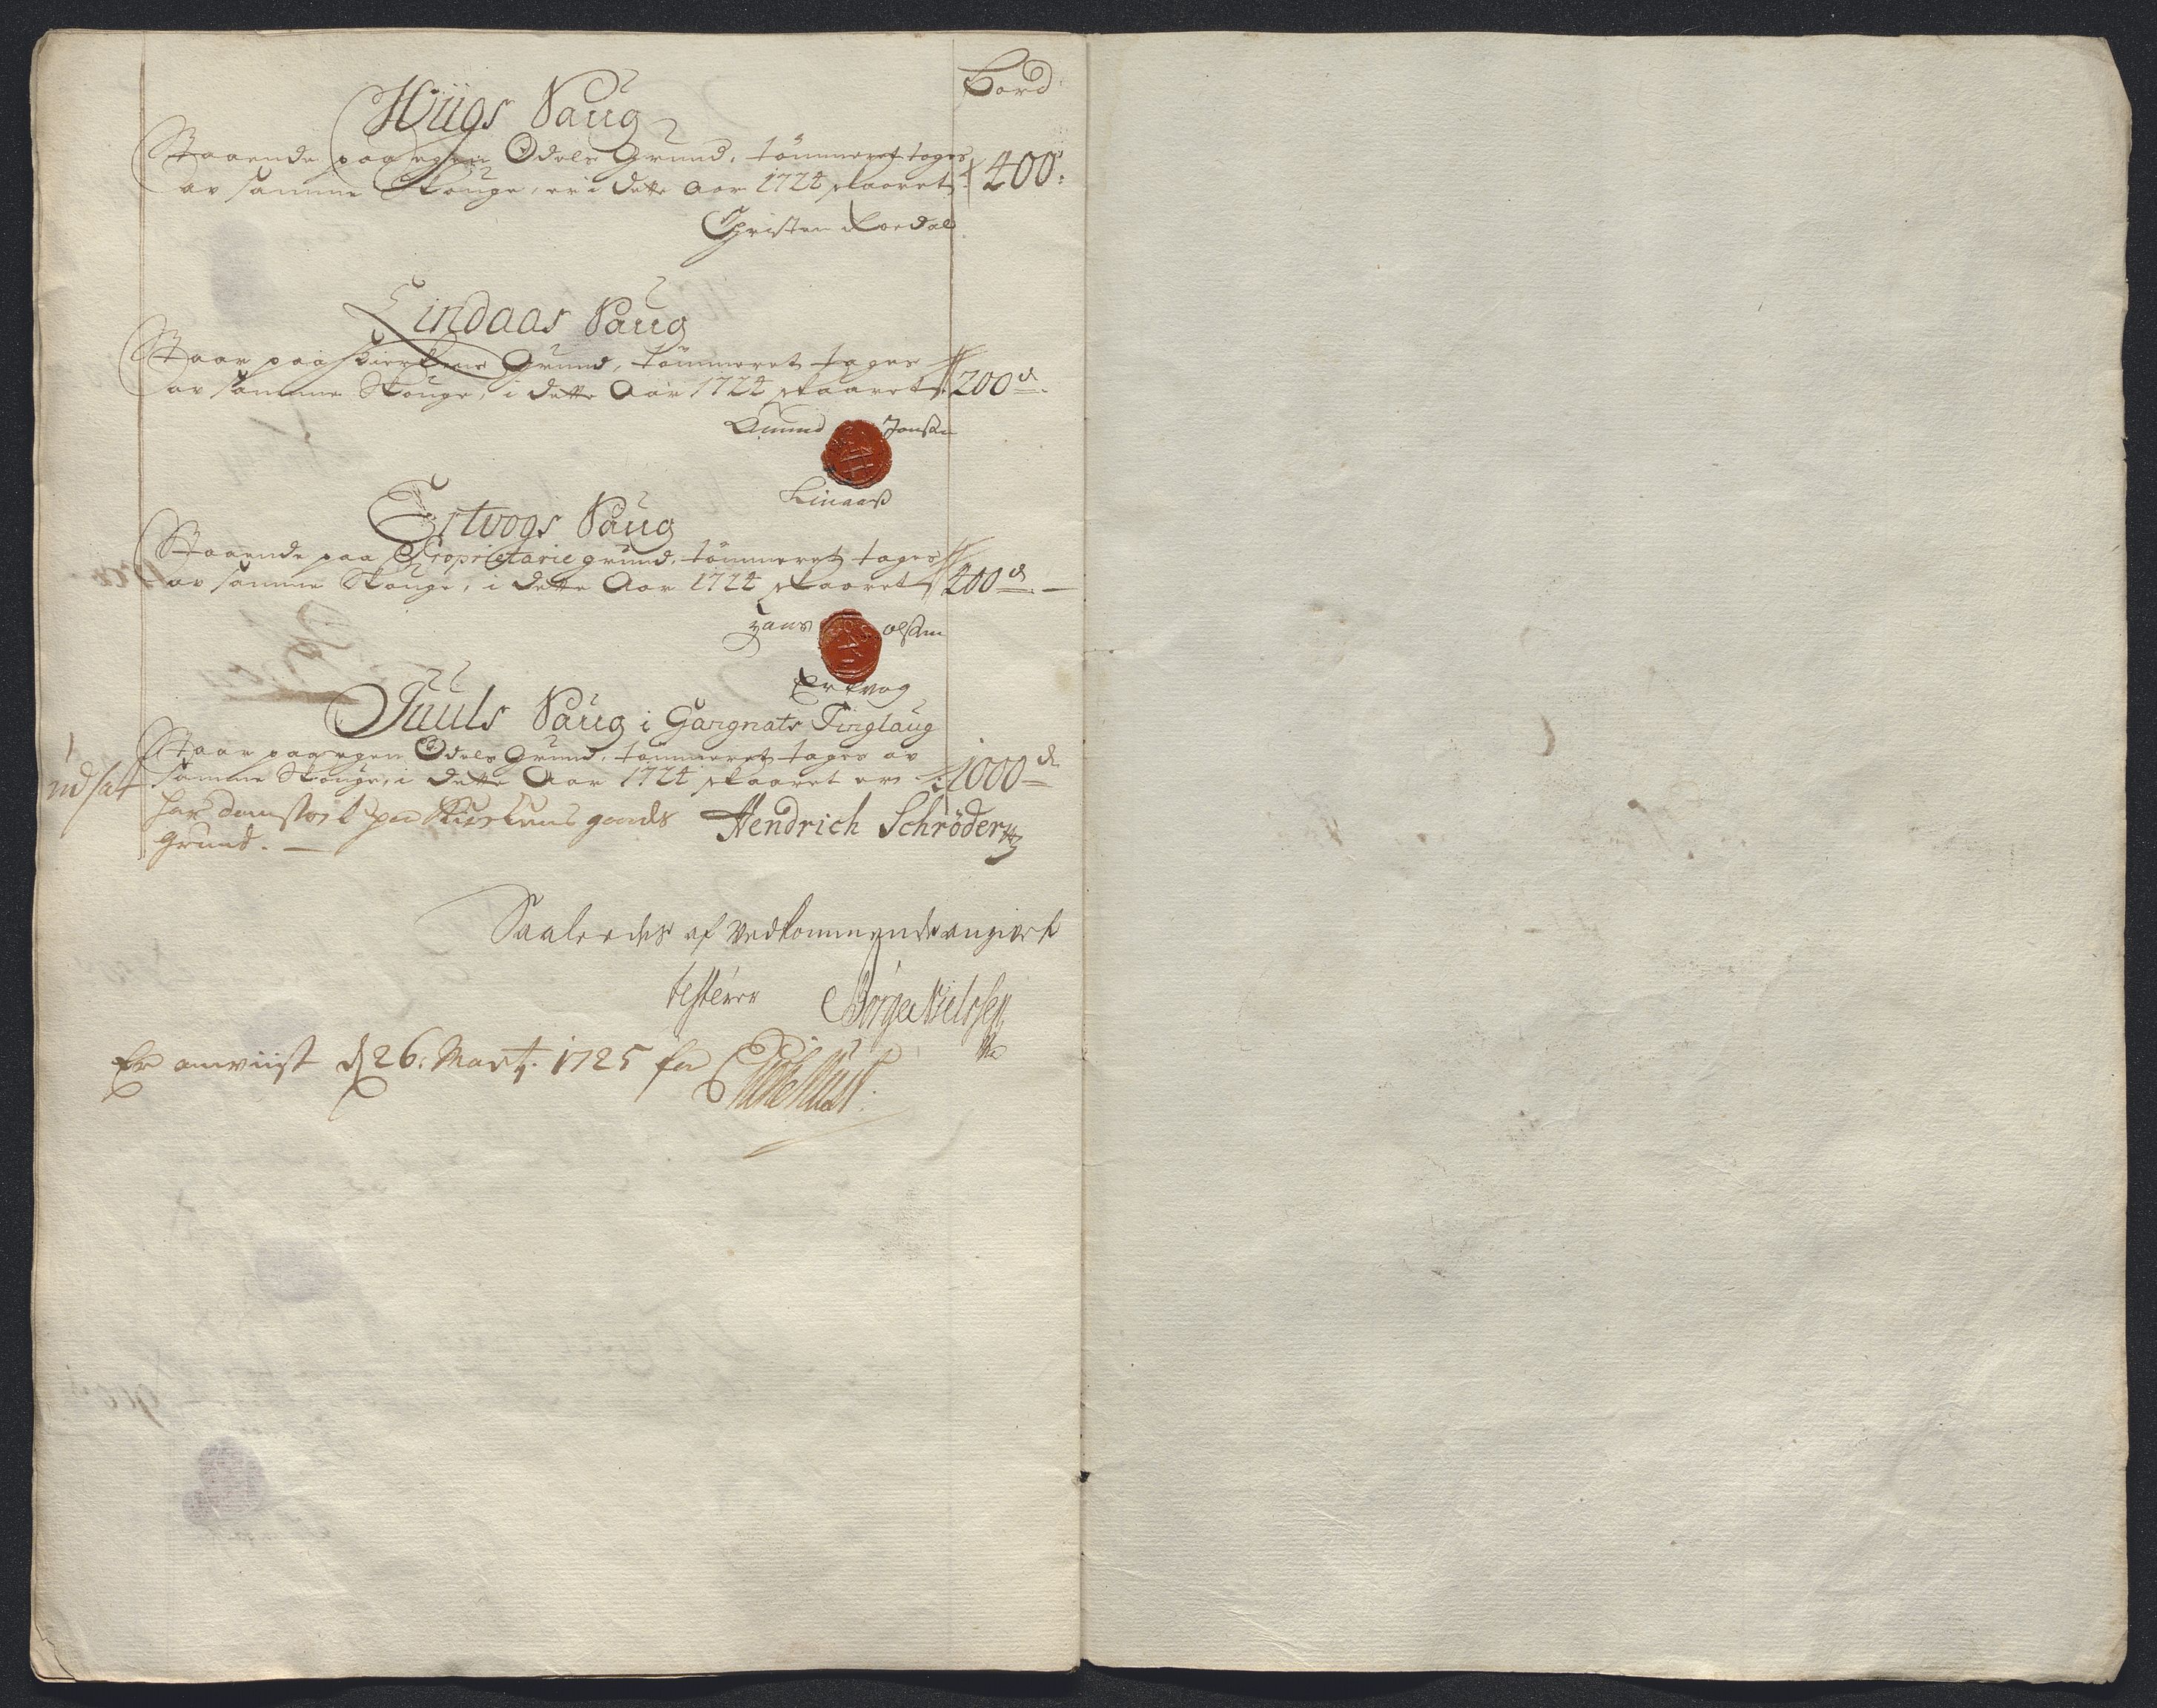 Bord
Hüigs Saug
Staaende paa egen Odels Grund, tømmeret tages
av samme Skouge, er i dette Aar 1724 skaaret 400:
Christen Roedal
Lindaas Saug
Staar paa Kierkens Grund, tømmeret tages
av samme Skouge, i dette Aar 1724 skaaret 200
Amund Jonsen
Linaas
Ertvogs Saug
Staaende paa Proprietarie grund, tømmeret tages
av samme Skouge, i dette Aar 1724 skaaret 400
Hans Olsen
Ertvog
Juuls Saug i Gangnats Tinglaug
Staar paa egen Odels Grund, tømmeret tages av
samme Skouge, i dette Aar 1724 skaaret er 1000
udsat
paa Kierkens goeds
grund.
Hendrich Schrøder
Saaledes af Vedkommende angivet
testerer Børge Nielsen
Er anviist d 26: Marty 1725 for